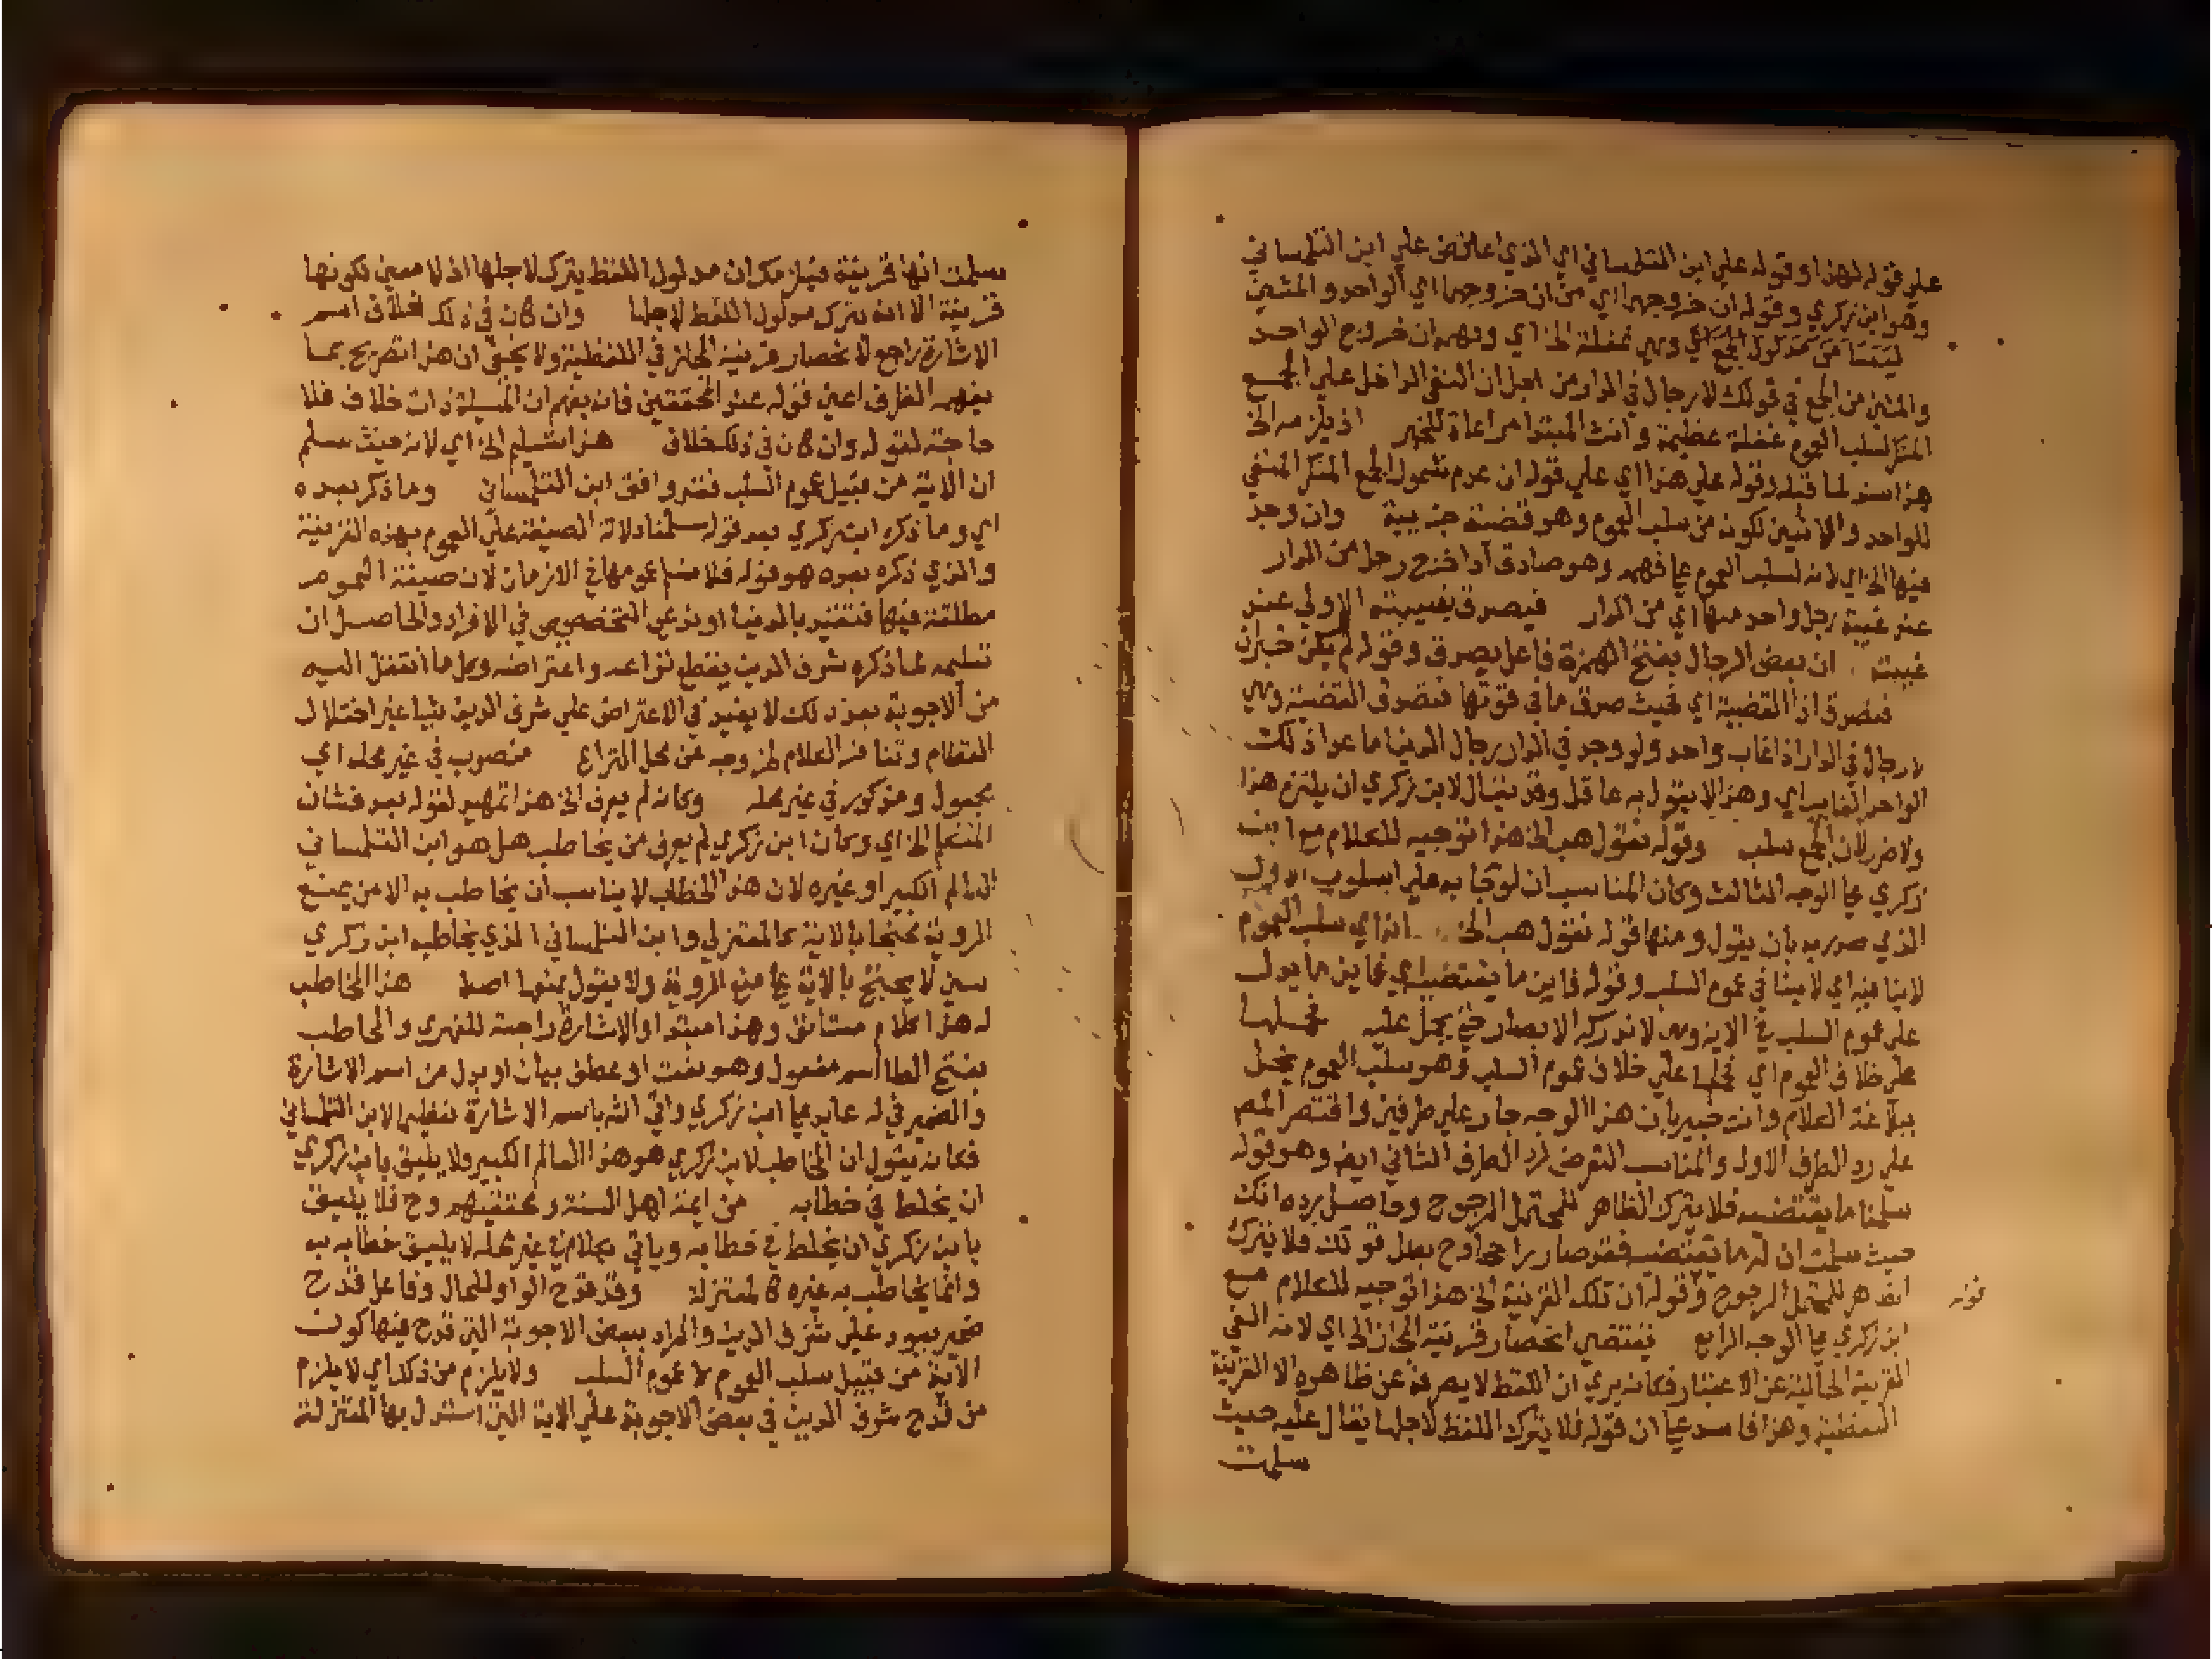 على قوله لهذا وقوله على ابن التلمساني اي الذي اعترض على ابن التلمساني
وهو ابن زكري وقوله ان خروجهما اي من ان خروجهما اي الواحد والمثنى
ليسا من مدلول الجمع اي وهي غفلة الخ اي وفهمه ان خروج الواحد
والمثنى من الجمع في قولك لا رجال في الدار من اجل ان النفي الداخل على الجمع
المنكر لسلب العموم غفلة عظيمة وانث المبتدا مراعاة للخبر اذ يلزمه الخ
هذا سند لما قبله وقوله على هذا اي على قوله ان عدم شمول الجمع المنكر المنفي
للواحد والاثنين لكونه من سلب العموم وهو قضية جزئية وان وجد
فيها الخ اي لانه لسلب العموم على فهمه وهو صادق اذا خرج رجل من الدار
عند غيبة رجل واحد منها اي من الدار فيصدق بغيبته الاولى عند
غيبته ان بعض الرجال بفتح الهمزة فاعل يصدق وقوله لم يكن خبران
فتصدق اذا القضية اي فحيث صدق ما في قوتها فتصدق القضية وهي
لا رجال في الدار اذا غاب واحد ولو وجد في الدار رجال الدنيا ما عدا ذلك
الواحد الغايب اي وهذا لا يقول به عاقل وقد يقال لابن زكري ان يلتزم هذا
ولا ضرر لان الجمع سلب وقوله نقول هب الخ هذا توجيه للكلام مع ابن
زكري على الوجه الثالث وكان المناسب ان لو كان به على اسلوب الاول
الذي صدر به بان يقول ومنها قوله نقول هب الخ انه اي سلب العموم
لا ينافيه اي لا ينافي عموم السلب وقوله فاين ما يقتضيه اي فاين ما يدل
على عموم السلب في الاية وهي لا تدركه الابصار حتى يحمل عليه فحملها
على خلاف العموم اي فحملها على خلاف عموم السلب وهو سلب العموم يخل
ببلاغة الكلام وانت خبير بان هذا الوجه جار على طرفين واقتصر المص
على رد الطرف الاول والمناسب التعرض لرد الطرف الثاني ايضا وهو قوله
سلمنا ما يقتضيه فلا يترك الظاهر للمحتمل المرجوح وحاصل رده انك
حيث سلمت ان له ما يقتضيه فقد صار راجحا وح بطل قولك فلا يترك
الظاهر للمحتمل المرجوح وقوله ان تلك القرينة الخ هذا توجيه للكلام مع
قوله
ابن زكري على الوجه الرابع يقتضي انحصار قرينة المجاز الخ اي لانه الغى
القرينة الحالية عن الاعتبار فكانه يرى ان اللفظ لا يصرفه عن ظاهره الا القرينة
اللفظية وهذا فاسد على ان قوله فلا يترك اللفظ لاجلها يقال عليه حيث
سلمت
سلمت انها قرينة فيلزمك ان مدلول اللفظ يترك لاجلها اذ لا معنى لكونها
قرينة الا انه يترك مدلول اللفظ لاجلها وان كان في ذلك خلاف اسم
الاشارة راجع لانحصار قرينة المجاز في اللفظية ولا يخفى ان هذا تصريح بما
يفهمه الظرف اعني قوله عند المحققين فانه يفهم ان المسيلة ذات خلاف فلا
حاجة لقوله وان كان في ذلك خلاف هذا تسليم الخ اي لانه حيث سلم
ان الاية من قبيل عموم السلب فقد وافق ابن التلمساني وما ذكر بعده
اي وما ذكره ابن زكري بعد قوله سلمنا دلالة الصيغة على العموم بهذه القرينة
والذي ذكره بعده هو قوله فلا نسلم عمومها في الازمان لان صيغة العموم
مطلقة فيها فتقيد بالدنيا او ندعي التخصيص في الافراد والحاصل ان
تسليمه لما ذكره شرف الدين يقطع نزاعه واعتراضه وكل ما انتقل اليه
من الاجوبة بعد ذلك لا يفيد في الاعتراض على شرف الدين شيا غير اختلال
النظام وتنافر الكلام لخروجه عن محل النزاع منصوب في غير محله اي
مجعول ومذكور في غير محله وكانه لم يعرف الخ هذا تمهيد لقوله بعد فشان
المتكلم الخ اي وكان ابن زكري لم يعرف من يخاطب هل هو ابن التلمساني
العالم الكبير او غيره لان هذا الخطاب لا يناسب ان يخاطب به الا من يمنع
الروية محتجا بالاية كالمعتزلي وابن التلمساني الذي يخاطبه ابن زكري
سني لا يحتج بالاية على منع الروية ولا يقول بمنعها اصلا هذا المخاطب
له هذا كلام مستانف وهذا مبتدا والاشارة راجعة للفهري والمخاطب
بفتح الطا اسم مفعول وهو نعت او عطف بيان او بدل من اسم الاشارة
والضمير في له عايد على ابن زكري واتى الش باسم الاشارة تعظيما لابن التلمساني
فكانه يقول ان المخاطب لابن زكري هو هذا العالم الكبير ولا يليق بابن زكري
ان يخلط في خطابه من ايمة اهل السنة ومحققيهم وح فلا يليق
بابن زكري ان يخلط في خطابه وياتي بكلام في غير محله لا يليق خطابه به
وانما يخاطب به غيره كالمعتزلة وقد قدح الواو للحال وفاعل قدح
ضمير يعود على شرف الدين والمراد ببعض الاجوبة التي قدح فيها كون
الاية من قبيل سلب العموم لا عموم السلب ولا يلزم من ذلك اي لا يلزم
من قدح شرف الدين في بعض الاجوبة على الاية التي استدل بها المعتزلة